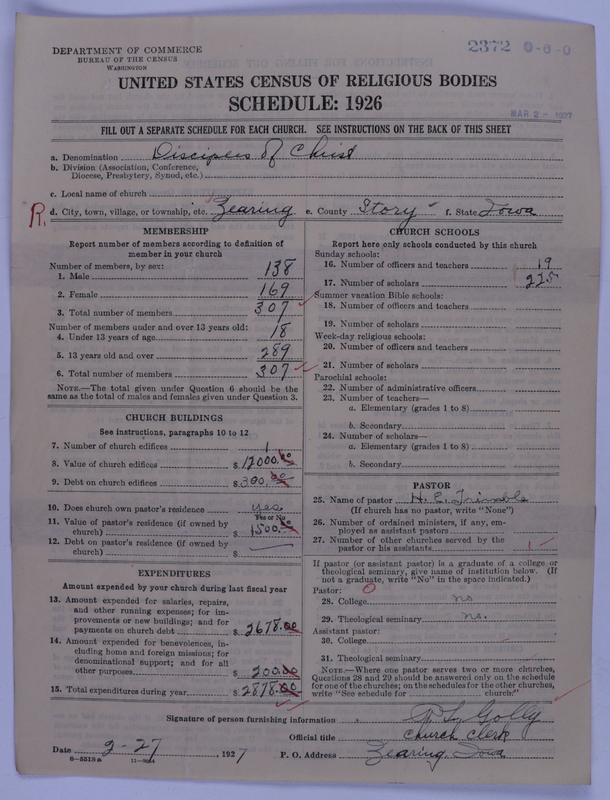 DEPARTMENT OF COMMERCE
BUREAU OF THE CENSUS
WASHINGTON
2372 0-6-0
UNITED STATES CENSUS OF RELIGIOUS BODIES
SCHEDULE: 1926
MAR 2 - 1927
FILL OUT A SEPARATE SCHEDULE FOR EACH CHURCH. SEE INSTRUCTIONS ON THE BACK OF THIS SHEET
a. Denomination Disciples of Christ
b. Division (Association, Conference,
Diocese, Presbytery, Synod, etc.)
c. Local name of church
R. d. City, town, village, or township, etc. Zearing e. County Story f. State Iowa
MEMBERSHIP
Report number of members according to definition of
member in your church
Number of members, by sex:
1. Male 138
2. Female 169
3. Total number of members 307
Number of members under and over 13 years old:
4. Under 13 years of age 18
5. 13 years old and over 289
6. Total number of members 307
NOTE.—The total given under Question 6 should be
same as the total of males and females given under Question 3.
CHURCH BUILDINGS
See instructions, paragraphs 10 to 12
7. Number of church edifices 1
8. Value of church edifices $12000.00
9. Debt on church edifices $300.00
10. Does church own pastor's residence yes
Yes or No
11. Value of pastor's residence (if owned by
church) $1500.00
12. Debt on pastor's residence (if owned by
church) $
EXPENDITURES
Amount expended by your church during last fiscal year
13. Amount expended for salaries, repairs,
and other running expenses; for im-
provements or new buildings; and for
payments on church debt $2678.00
14. Amount expended for benevolences, in-
cluding home and foreign missions; for
denominational support; and for all
other purposes $200.00
15. Total expenditures during year $2878.00
CHURCH SCHOOLS
Report here only schools conducted by this church
Sunday schools:
16. Number of officers and teachers 19
17. Number of scholars 225
Summer vacation Bible schools:
18. Number of officers and teachers
19. Number of scholars
Week-day religious schools:
20. Number of officers and teachers
21. Number of scholars
Parochial schools:
22. Number of administrative officers
23. Number of teachers—
a. Elementary (grades 1 to 8)
b. Secondary
24. Number of scholars—
a. Elementary (grades 1 to 8)
b. Secondary
PASTOR
25. Name of pastor H. E. Trimble
(If church has no pastor, write "None")
26. Number of ordained ministers, if any, em-
ployed as assistant pastors
27. Number of other churches served by the
pastor or his assistants 1
If pastor (or assistant pastor) is a graduate of a college or
theological seminary, give name of institution below. (If
not a graduate, write "No" in the space indicated.)
Pastor: 0
28. College no
29. Theological seminary no.
Assistant pastor:
30. College
31. Theological seminary
NOTE.—Where one pastor serves two or more churches,
Questions 28 and 29 should be answered only on the schedule
for one of the churches; on the schedules for the other churches,
write "See schedule for church."
Signature of person furnishing information Golly
Official title Church Clerk
Date 2-27 1927 P. O. Address Zearing, Iowa